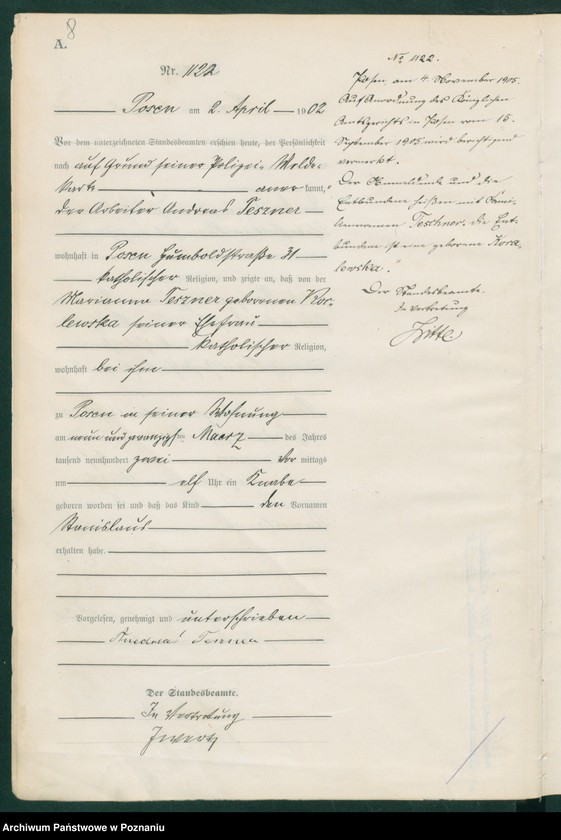 8
A.
Nr. 1122
Posen am 2. April 1902
Vor dem unterzeichneten Standesbeamten erschien heute, der Persönlichkeit
nach auf Grund seiner Polizei-Melde-
karte anerkannt,
der Arbeiter Andreas Teszner
wohnhaft in Posen Humboldstraße 31
katholischer Religion, und zeigte an, daß von der
Marianna Teszner geborenen Kor-
lewska seiner Ehefrau
katholischer Religion,
wohnhaft bei ihm
zu Posen in seiner Wohnung
am neun und zwanzigsten Maerz des Jahres
tausend neunhundert zwei Vormittags
um elf Uhr ein Knabe
geboren worden sei und daß das Kind den Vornamen
Stanislaus
erhalten habe.
Vorgelesen, genehmigt und unterschrieben
Andreas
Der Standesbeamte.
In Vertretung
No 1122.
Posen, am 4. November 1915.
Auf Anordnung des Königlichen
Amtsgerichts in Posen vom 15.
September 1915 wird berichtigend
vermerkt.
Der Anmeldende und die
Entbundene heißen mit Fami-
liennamen Teschner, die Ent-
bundene ist eine geborene
lewska."
Der Standesbeamte.
In Vertretung
Archiwum Państwowe w Poznaniu